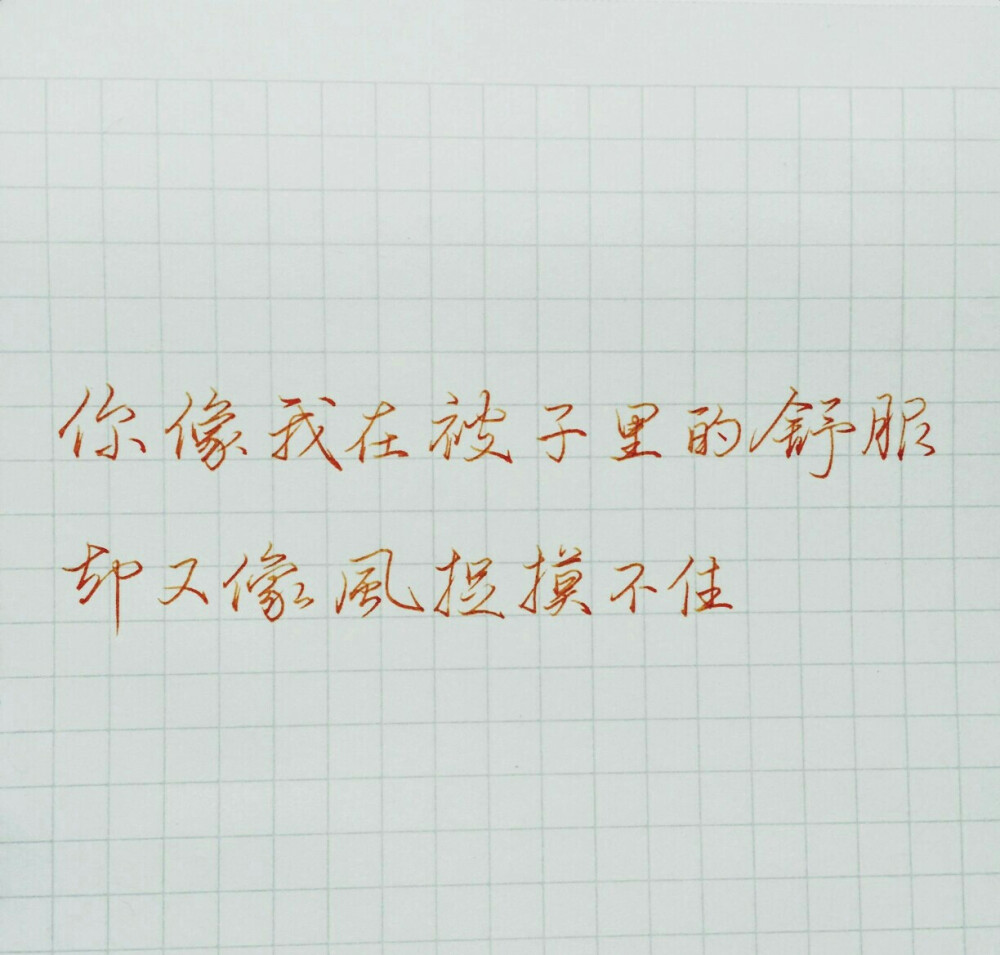 你像我在被子里的舒服
却又像風捉摸不住